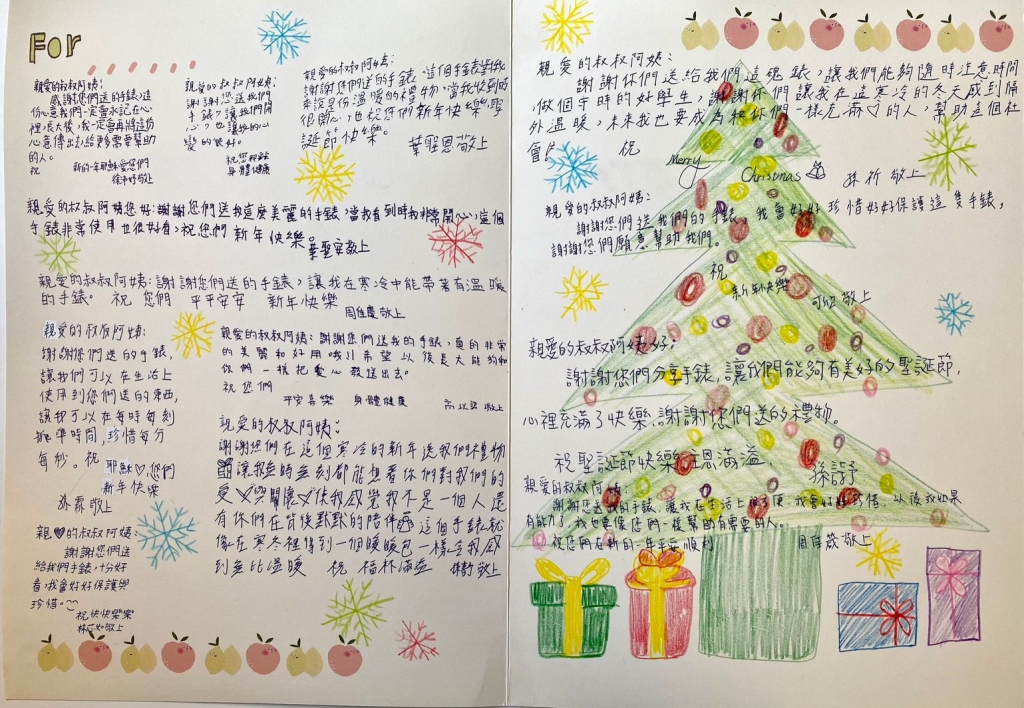 For
親愛的叔叔阿姨:
感謝您們送的手錶,這
份心意我們一定會永記在心
裡,長大後,我一定會再將這份
心意傳出去給更多需要幫助
的人。
祝 新的一年耶穌愛您們
敬上
親愛的叔叔阿姨:
謝謝您送我們
手錶,讓我們開
心,也讓我的心
變的很好。
祝您耶誕
身體健康
親愛的叔叔阿姨:
謝謝你們送的手錶,這個手錶對我
來說是份溫暖的禮物,當我收到時
很開心,也祝您們新年快樂,聖
誕節快樂。
葉聖恩敬上
親愛的叔叔阿姨您好:謝謝您們送我這麼美麗的手錶,當我看到時我非常開心,這個
手錶非常使用也很好看,祝您們 新年快樂 葉聖安敬上
親愛的叔叔阿姨:謝謝您們送的手錶,讓我在寒冷中能帶著有溫暖
的手錶。 祝 您們 平平安安 新年快樂
周佳慶敬上
親愛的叔叔阿姨:
謝謝您們送的手錶,
讓我們可以在生活上
使用到您們送的東西,
讓我可以在每時每刻
抓準時間,珍惜每分
每秒。祝 耶穌♡您們
新年快樂
孫霖敬上
親愛的叔叔阿姨:謝謝您們送我的手錶,真的非常
的美麗和好用哦!!希望以後長大能夠和
你們一樣把愛心發送出去。
祝您們
平安喜樂 身體健康
敬上
親愛的叔叔阿姨:
謝謝您們在這個寒冷的新年送我們禮物
讓我無時無刻都能想着你們對我們的
愛 和關懷 使我感覺我不是一個人還
有你們在背後默默的陪伴 這個手錶就
像在寒冬裡得到一個暖暖包一樣令我感
到無比溫暖 祝 福杯滿溢 敬上
親♥的叔叔阿姨:
謝謝您們送
給我們手錶,十分好
看,我會好好保護與
珍惜。
祝快快樂樂
敬上
親愛的叔叔阿姨:
謝謝你們送給我們這塊錶,讓我們能夠隨時注意時間
做個守時的好學生,謝謝你們讓我在這寒冷的冬天感到格
外溫暖,未來我也要成為和你們一樣充滿♡的人,幫助這個社
會! 祝
Merry Christmas
孫祈敬上
親愛的叔叔阿姨:
謝謝您們送我們的手錶,我會好好珍惜好好保護這隻手錶,
謝謝您們願意幫助我們。
祝
新年快樂
敬上
親愛的叔叔阿姨好:
謝謝您們分享手錶,讓我們能夠有美好的聖誕節,
心裡充滿了快樂,謝謝您們送的禮物。
祝聖誕節快樂主恩滿溢, 孫詩
親愛的叔叔阿姨:
謝謝您送我的手錶,讓我在生活上許多便,我會好好珍惜,以後我如果
有能力了,我也要像您們一樣幫助有需要的人。
祝您們在新的一年平安順利 周佳箴敬上